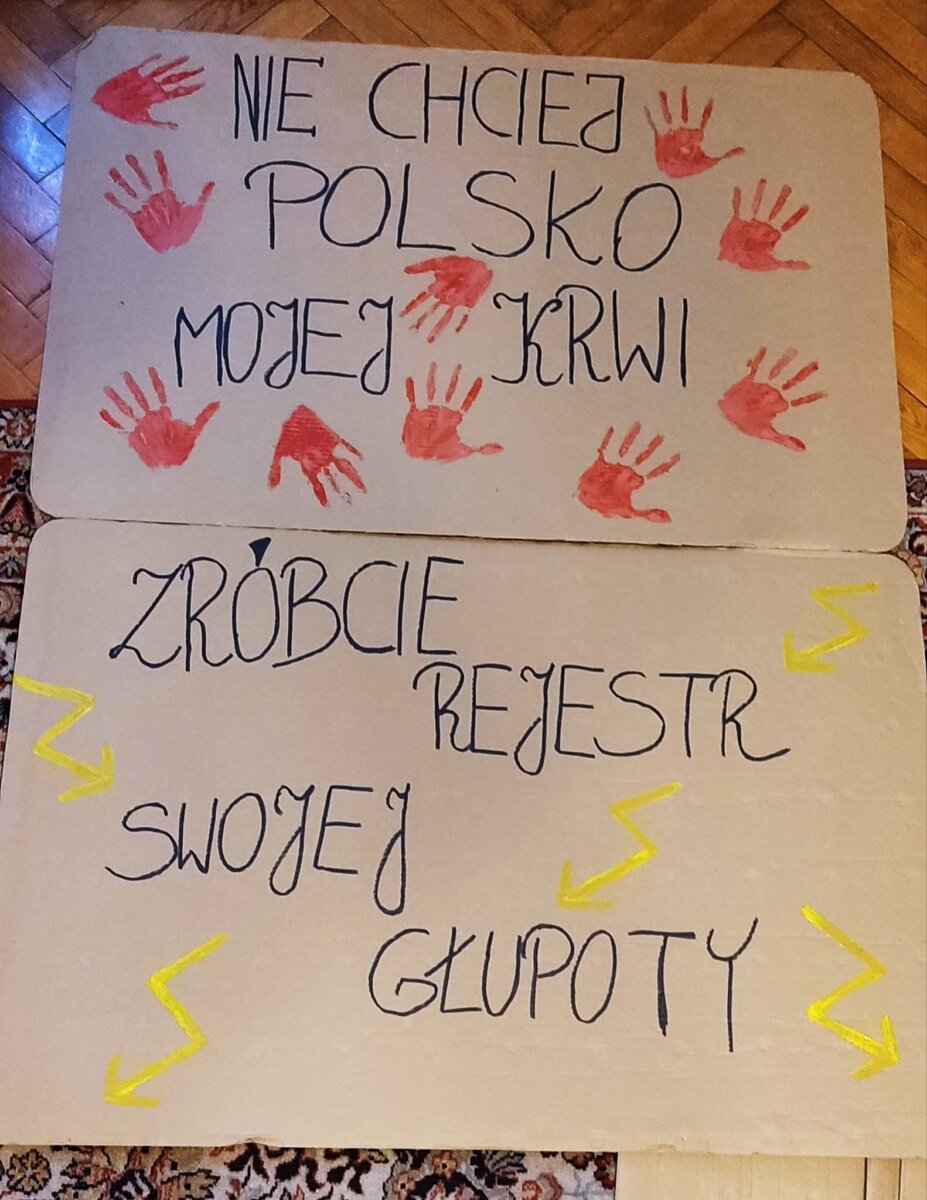 NIE CHCIEJ
POLSKO
MOJEJ KRWI
ZRÓBCIE
REJESTR
SWOJEJ
GŁUPOTY